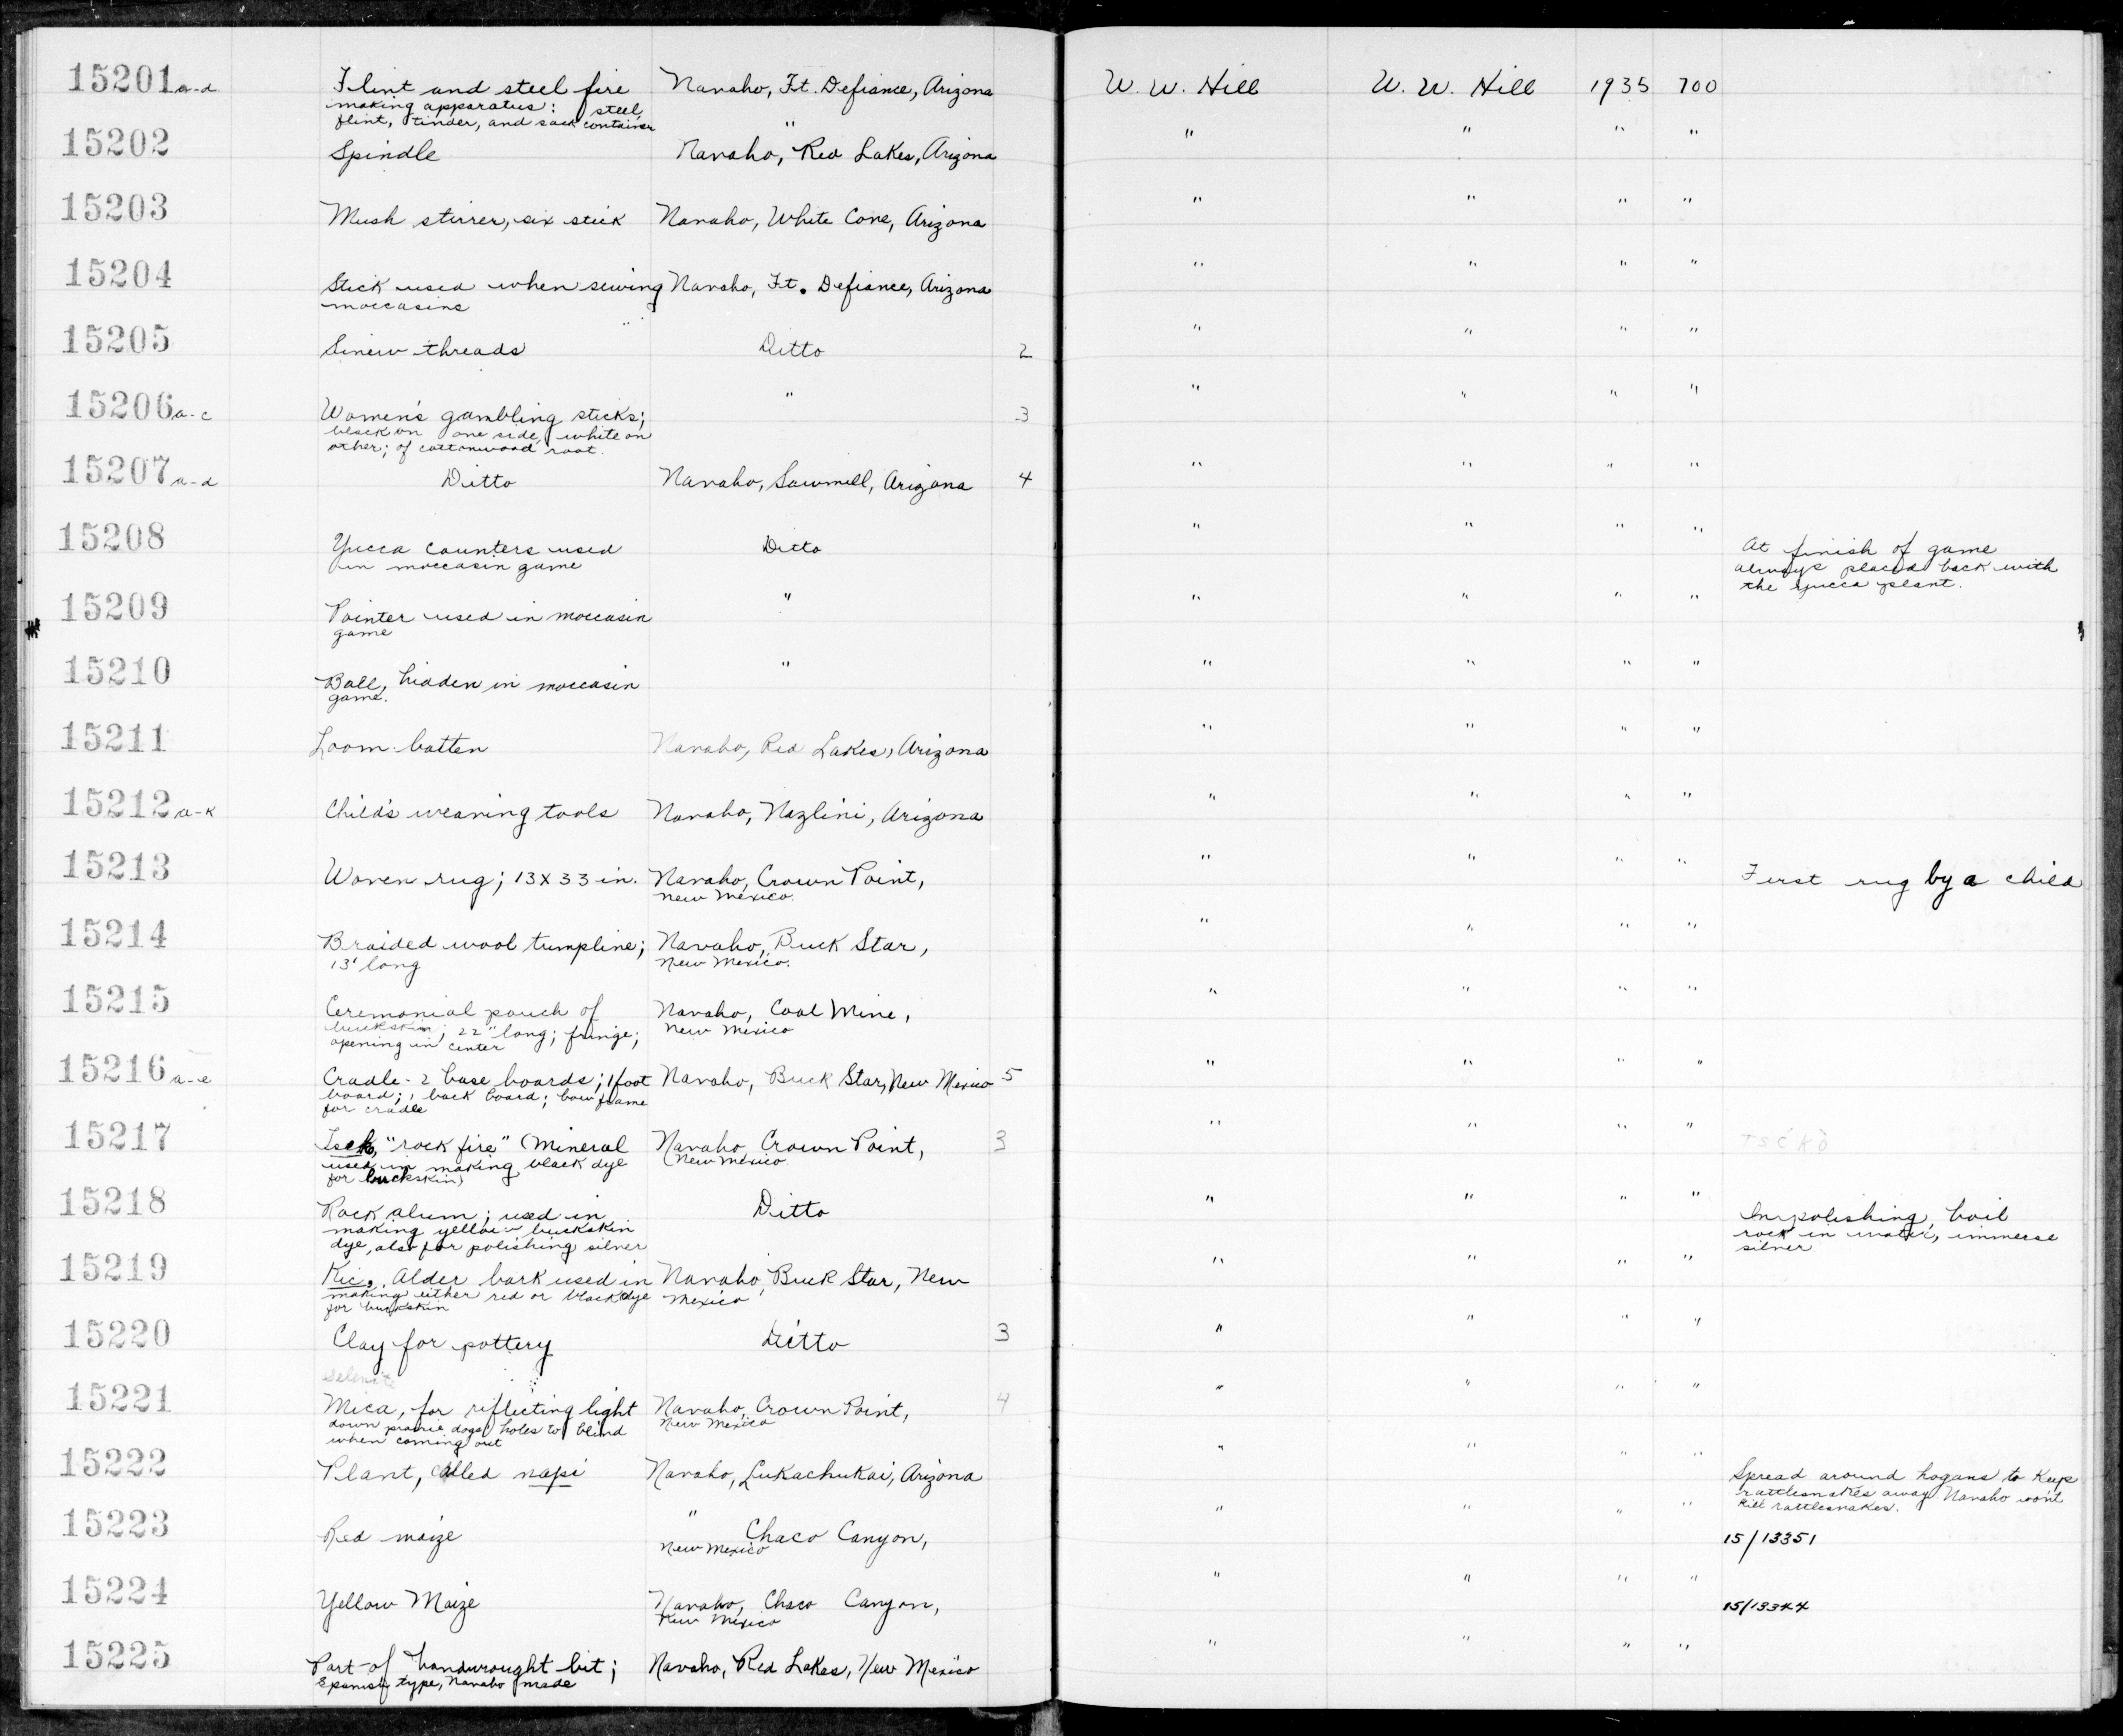 15201 a-d Flint and steel fire Navaho, Ft. Defiance, Arizona W. W. Hill W. W. Hill 1935 700
making apparatus: steel,
flint, tinder, and sack container "
15202 Spindle Navaho, Red Lakes, Arizona " " " "
15203 Mush stirrer, six stick Navaho, White Cone, Arizona " " " "
15204 Stick used when sewing Navaho, Ft. Defiance, Arizona " " " "
moccasins
15205 Sinew threads Ditto 2 " " " "
15206 a-c Women's gambling sticks; " 3 " " " "
black on one side, white on
other; of cottonwood root.
15207 a-d Ditto Navaho, Sawmill, Arizona 4 " " " "
15208 Yucca counters used Ditto " " " " At finish of game
in moccasin game always placed back with
the yucca plant.
15209 Pointer used in moccasin " " " " "
game
15210 Ball, hidden in moccasin " " " " "
game.
15211 Loom batten Navaho, Red Lakes, Arizona " " " "
15212 a-k Child's weaving tools Navaho, Nazlini, Arizona " " " "
15213 Woven rug; 13 x 33 in. Navaho, Crown Point, " " " " First rug by a child
New Mexico.
15214 Braided wool tumpline; Navaho, Buck Star, " " " "
13' long New Mexico.
15215 Ceremonial pouch of Navaho, Coal Mine, " " " "
buckskin; 22" long; fringe; New Mexico
opening in center
15216 a-e Cradle - 2 base boards; 1 foot Navaho, Buck Star, New Mexico 5 " " " "
board; 1 back board; bow frame
for cradle
15217 "rock fire" (Mineral Navaho, Crown Point, 3 " " " " TSÉKÒ
used in making black dye New Mexico
for buckskin)
15218 Rock alum; used in Ditto " " " " In polishing, boil
making yellow buckskin rock in water, immerse
dye, also for polishing silver silver
15219 Kic. Alder bark used in Navaho, Buck Star, New " " " "
making either red or black dye Mexico
for buckskin
15220 Clay for pottery Ditto 3 " " " "
Selenite
15221 Mica, for reflecting light Navaho, Crown Point, 4 " " " "
down prairie dogs' holes to blind New Mexico
when coming out
15222 Plant, called napi Navaho, Lukachukai, Arizona " " " " Spread around hogans to keep
rattlesnakes away. Navaho won't
kill rattlesnakes.
15223 Red maize " Chaco Canyon, " " " " 15/13351
New Mexico
15224 Yellow Maize Navaho, Chaco Canyon, " " " " 15/13344
New Mexico
15225 Part of handwrought bit; Navaho, Red Lakes, New Mexico " " " "
Spanish type, Navaho made